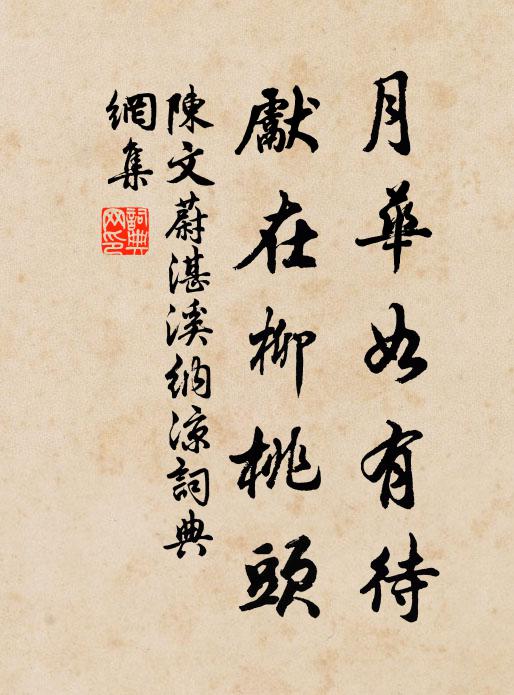 月華如有待
獻在柳桃頭
陳文蔚湛溪納凉詞典
網集
詞典網印